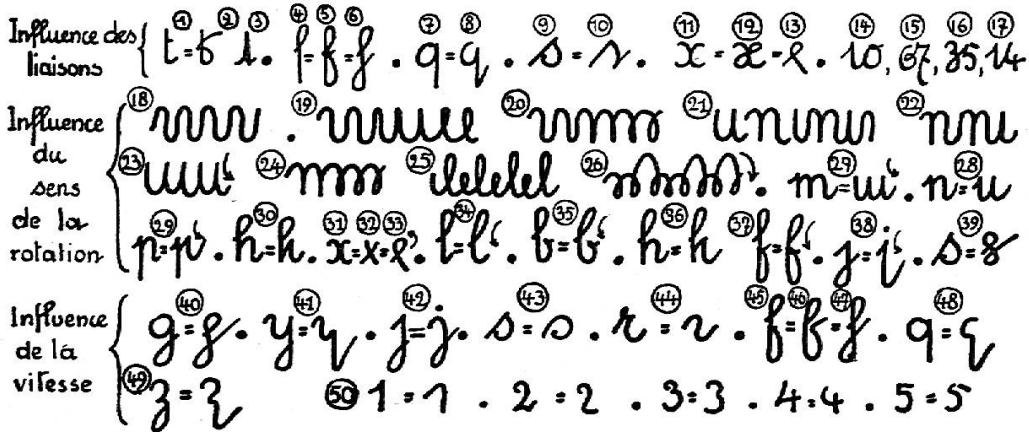 Influence des liaisons { ① t = ② t ③ t. ④ f = ⑤ f = ⑥ f. ⑦ q = ⑧ q. ⑨ s = ⑩ s. ⑪ x = ⑫ x = ⑬ x. ⑭ 10, ⑮ 67, ⑯ 35, ⑰ 14
Influence du sens de la rotation { ⑱ ⑲ ⑳ ㉑ ㉒
㉓ ㉔ ㉕ lelelel ㉖ . m ㉙ = m. n ㉘ = u
㉙ p = p. ㉚ h = h. ㉛ x = ㉜ x = ㉝ x. ㉞ l = l. ㉟ b = b. ㊱ h = h ㊲ f = f. ㊳ j = j. ㊴ s = s
Influence de la vitesse { ㊵ g = g. ㊶ y = y. ㊷ j = j. ㊸ s = s. ㊹ r = r. ㊺ f = ㊻ f = ㊼ f. ㊽ q = q
㊾ z = z ㊿ 1 = 1 . 2 = 2 . 3 = 3 . 4 = 4 . 5 = 5